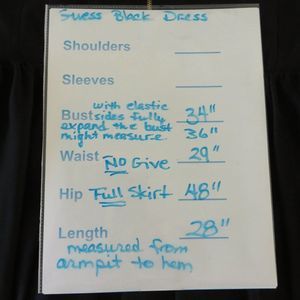 Guess Black Dress
Shoulders
Sleeves
with elastic
Bust sides fully 34"
expand the bust
might measure 36"
Waist No Give 29"
Hip Full Skirt 48"
Length 28"
measured from
armpit to hem